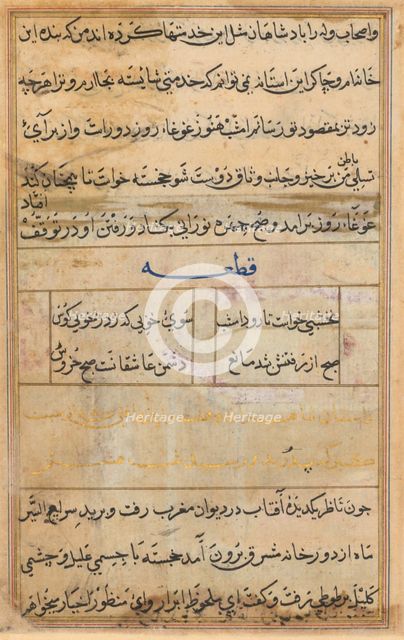 و اصحاب وله را بادشاهان مثل این خدمتها کرده اند من که بنده این
خاندام و چاکر این آستانه نمی توانم که خدمتی شایسته بجا آرم و ترا هر چه
زودتر بمقصود تو رسانم امشب هنوز غوغاء روز دور است و از برآی
باطن
تسلی من برخیز و جانب وثاق دوست شو خجسته خواست تا همچنان کند
افتاد
غوغاء روز برآمد و صبح چهره نورانی بکشاد و رفتن او در توقف
قطعه
نخشبی خواست تا رود امشب سوی خوبی که در خوبی کوش
صبح از رفتنش بشد مانع دشمن عاشقانست صبح خروش
چون ناظر یکدیدهٔ آفتاب در دیوان مغرب رفت و برید سریع السیر
ماه از دور خانه مشرق برون آمد خجسته با جسمی علیل و چشمی
کلیل بر طوطی رفت و گفت ای ملحوظ ابرار و ای منظور اخیار میخواهم
Heritage Heritage
Images Images